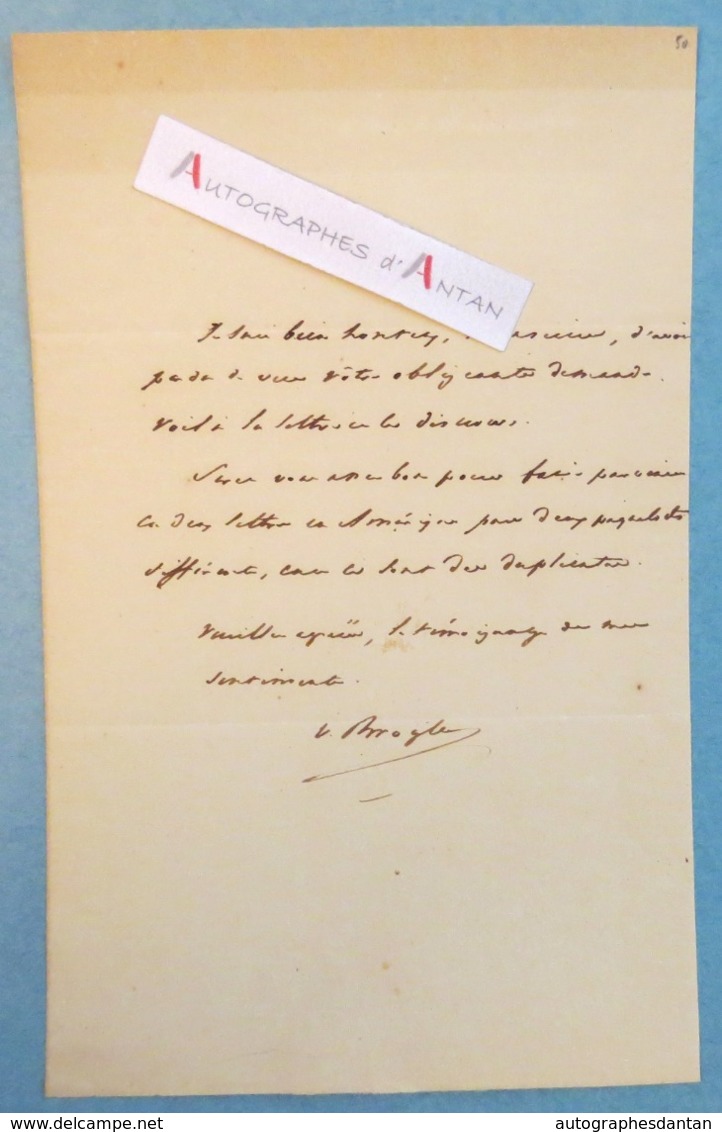 50
AUTOGRAPHES d'ANTAN
Je suis bien honteux, , d'avoir
perdu de vue vôtre obligeante demande.
Voilà la lettre et les discours.
Serez vous assez bon pour faire parvenir
ces deux lettres en Amérique par deux paquebots
différents, car ce sont des duplicata.
Veuillez agréer, le témoignage de mes
sentiments.
v. Broglie
www.delcampe.net
autographesdantan